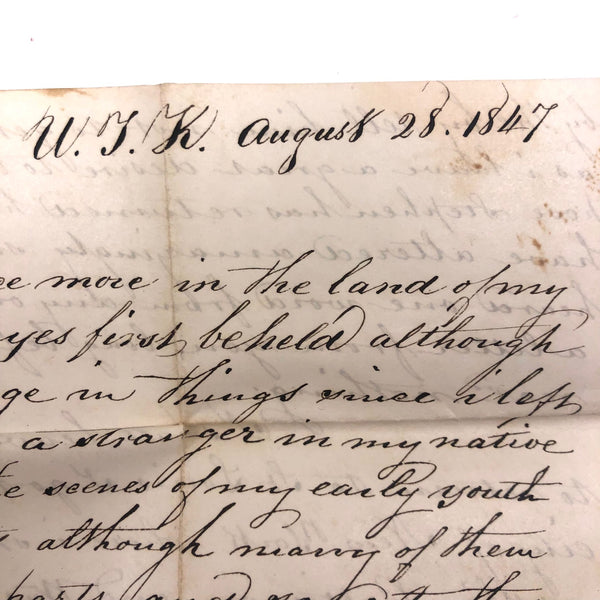 W. T. K. August 28. 1847
ce more in the land of my
yes first beheld although
ge in things since i left
a stranger in my native
e scenes of my early youth
s although many of them
parts and